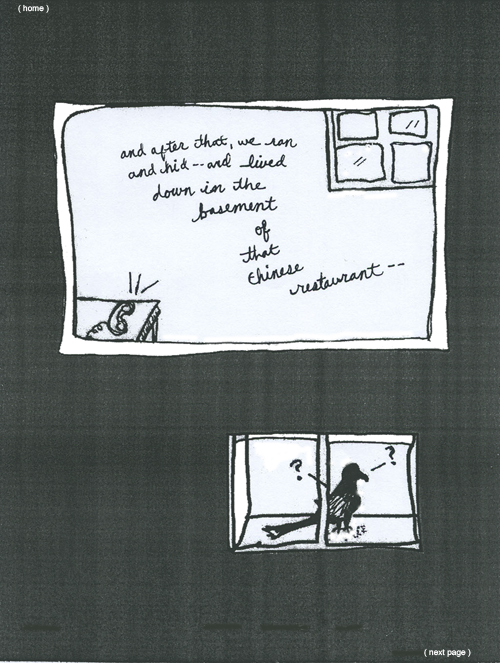 ( home )
and after that, we ran
and hid -- and lived
down in the
basement
of
that
chinese
restaurant --
?
?
( next page )